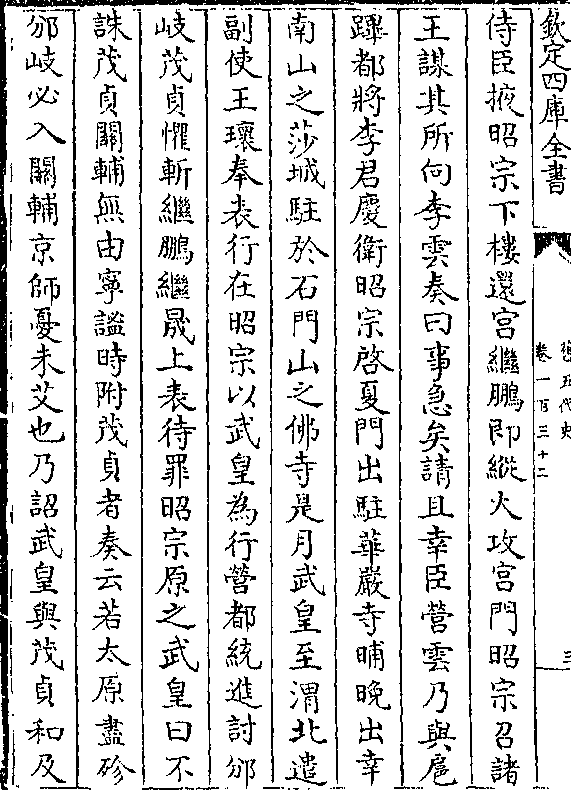 欽定四庫全書
舊五代史
卷一百三十二
三
侍臣掖昭宗下樓還宮繼鵬即縱火攻宮門昭宗召諸
王謀其所向李雲奏曰事急矣請且幸臣營雲乃與扈
蹕都將李君慶衛昭宗啓夏門出駐華嚴寺晡晚出幸
南山之莎城駐於石門山之佛寺是月武皇至渭北遣
副使王瓌奉表行在昭宗以武皇為行營都統進討邠
岐茂貞懼斬繼鵬繼晟上表待罪昭宗原之武皇曰不
誅茂貞關輔無由寧謐時附茂貞者奏云若太原盡殄
邠岐必入關輔京師憂未艾也乃詔武皇與茂貞和及